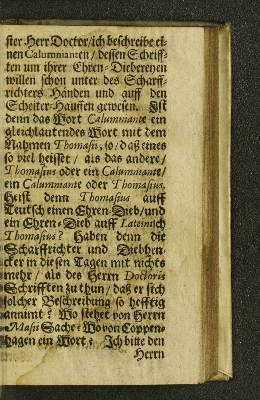 ster Herr Doctor/ich beschreibe ei-
nen Calumnianten / dessen Schriff-
ten um ihrer Ehren-Diebereyen
willen schon unter des Scharff-
richters Händen und auff den
Scheiter-Hauffen gewesen. Ist
denn das Wort Calumniante ein
gleichlautendes Wort mit dem
Nahmen Thomasii, so/ daß eines
so viel heisset / als das andere/
Thomasius oder ein Calumniante/
ein Calumniante oder Thomasius.
Heist denn Thomasius auff
Teutsch einen Ehren-Dieb/und
ein Ehren-Dieb auff Lateinisch
Thomasius? Haben denn die
Scharffrichter und Diebhen-
cker in diesen Tagen mit nichts
mehr / als des Herrn Doctoris
Schrifften zu thun/ daß er sich
solcher Beschreibung so hefftig
annimt? Wo stehet von Herrn
Masii Sache? Wo von Coppen-
hagen ein Wort? Ich bitte den
Herrn